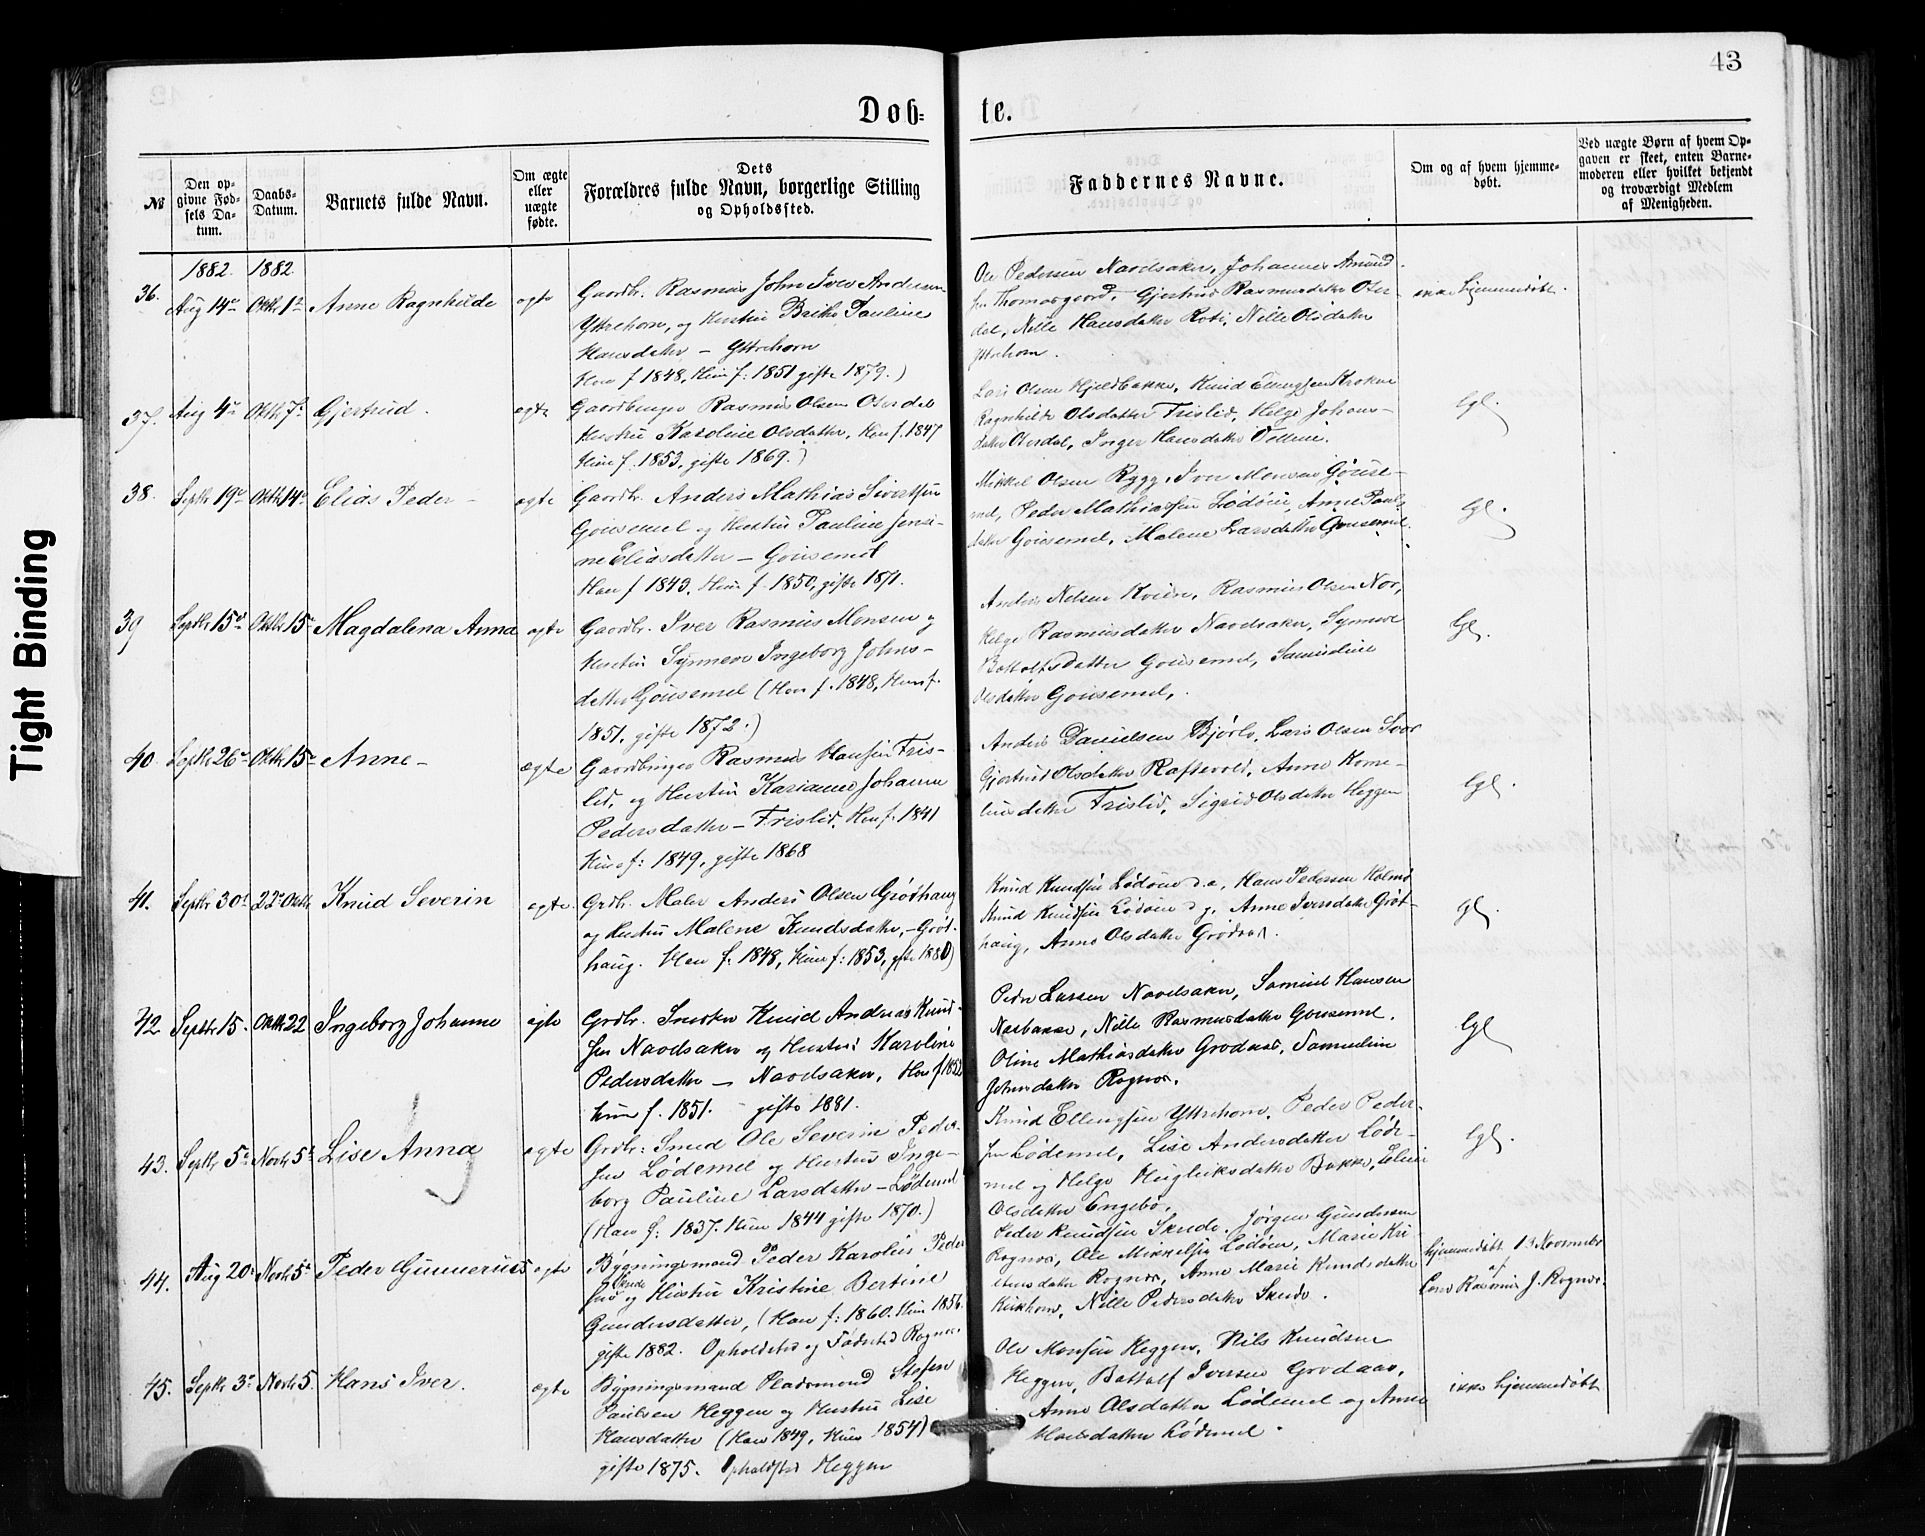 43
Døb-
te.
Tight Binding
№
Den op-
givne Fød-
sels Da-
tum.
Daabs-
Datum.
Barnets fulde Navn.
Om ægte
eller
uægte
fødte.
Dets
Forældres fulde Navn, borgerlige Stilling
og Opholdssted.
Faddernes Navne.
Om og af hvem hjemme-
døbt.
Ved uægte Børn af hvem Op-
gaven er skeet, enten Barne-
moderen eller hvilket bekjendt
og troværdigt Medlem
af Menigheden.
1882. 1882.
36. Aug 14de Oktbr 1ste Anne Ragnhilde ægte
Gaardbr. Rasmus John Iver Andersen
Yttrehorn, og Hustru Brithe Pauline
Hansdatter – Yttrehorn
Han f 1848, Hun f: 1851 gifte 1879.)
Ole Pedersen Navdsaker, Johannes Amund-
sen Thomasgaard, Gjertrud Rasmusdatter Oter-
dal, Nille Hansdatter Roti, Nille Olsdatter
Yttrehorn.
ikke hjemmedøbt.
37. Aug 4de Oktbr 7de Gjertrud. ægte
Gaardbruger Rasmus Olsen Oterdal
Hustru Karoline Olsdatter, Han f. 1847
Hun f. 1853, gifte 1869.)
Lars Olsen Hjeldbakke, Knud Ellingsen Kroken
Ragnhilde Olsdatter Frislid, Helge Johans-
datter Oterdal, Inger Hansdatter
Igl.
38. Septbr 19de Oktbr 14de Elias Peder – ægte
Gaardbr. Anders Mathias Sivertsen
Gousemel og Hustru Pauline Jensi-
ne Eliasdatter – Gousemel
Han f 1843, Hun f. 1850, gifte 1871.
Mikkel Olsen Rygg, Iver Monsen Gouse-
mel, Peder Mathiassen Lødøen, Anne Pauls
datter Gousemel, Malene Larsdatter Gousemel.
Igl.
39 Septbr 15de Oktbr 15de Magdalena Anna ægte
Gaardbr. Iver Rasmus Monsen og
Hustru Synneve Ingeborg Johns-
datter Gousemel (Han f. 1848, Hun f.
1851, gifte 1872.)
Anders Nelsen Rasmus Olsen Nor,
Helge Rasmusdatter Navdsaker, Synneve
Battolfsdatter Gousemel, Samueline
Olsdatter Gousemel,
Igl.
40. Septbr 26de Oktbr 15de Anne – ægte
Gaardbruger Rasmus Hansen Fris-
lid, og Hustru Karianne Johanne
Pedersdatter – Frislid, Han f. 1841
Hun f: 1849, gifte 1868
Anders Danielsen Bjørlo, Lars Olsen
Gjertrud Olsdatter Raftevold, Anne Korne-
liusdatter Frislid, Sigrid Olsdatter Heggen
Igl.
41. Septbr 30te 22de Oktbr Knud Severin ægte
Grdbr. Maler Anders Olsen Grøthaug
og Hustru Malene Knudsdatter, – Grøt-
haug. Han f. 1848, Hun f: 1853, gifte 1880)
Knud Knudsen Lødøen d.æ, Hans Pedersen Holmø
Knud Knudsen Lødøen d.y. Anne Iversdatter Grøt-
haug, Anne Olsdatter Grodaas.
Igl.
42 Septbr 15. Oktbr 22 Ingeborg Johanne ægte
Grdbr. Snedker Knud Andreas Knud-
sen Navdsaker og Hustru Karoline
Pedersdatter – Navdsaker, Han f 1852
Hun f. 1851. gifte 1881.
Peder Larsen Navdsaker, Samuel Hansen
Næsbakke, Nille Rasmusdatter Gousemel.
Oline Mathiasdatter Grodaas, Samueline
Johnsdatter Rognes.
Igl
43. Septbr 5te Novbr 5te Lise Anna ægte
Grdbr: Smed Ole Severin Peder-
sen Lødemel og Hustru Inge-
borg Pauline Larsdatter – Lødemel
(Han f: 1837. Hun 1844 gifte 1870.)
Knud Ellingsen Yttrehorn, Peder Peder-
sen Lødemel, Lise Andersdatter Løde-
mel og Helge Hugleiksdatter Bakke, Eline
Olsdatter Engebø,
Igl.
44. Aug 20de Novbr 5te Peder Gunnerius ægte
Bygningsmand Peder Karolus Peder
sen Skrede og Hustru Kristine Bertine
Gundersdatter, (Han f: 1860. Hun 1856.
gifte 1882. Opholdsted og Fødested Rognes.
Peder Knudsen Skrede, Jørgen Gundersen
Rognes, Ole Mikkelsen Lødøen, Marie Kri
stensdatter Rognes, Anne Marie Knudsdatter
Kirkhorn, Nille Pedersdatter Skrede.
hjemmedøbt 1 Novembr
af
Lars Rasmus J. Rognes.
45. Septbr 3de Novbr 5. Hans Iver. ægte
Bygningsmand Pladsmand Stefen
Paulsen Heggen og Hustru Lise
Hansdatter (Han 1849, Hun 1854)
gifte 1875. Opholdsted Heggen
Ole Monsen Heggen, Nils Knudsen
Heggen, Battolf Iversen Grodaas,
Anne Olsdatter Lødemel og Anne
Lødemel.
ikke hjemmedøbt